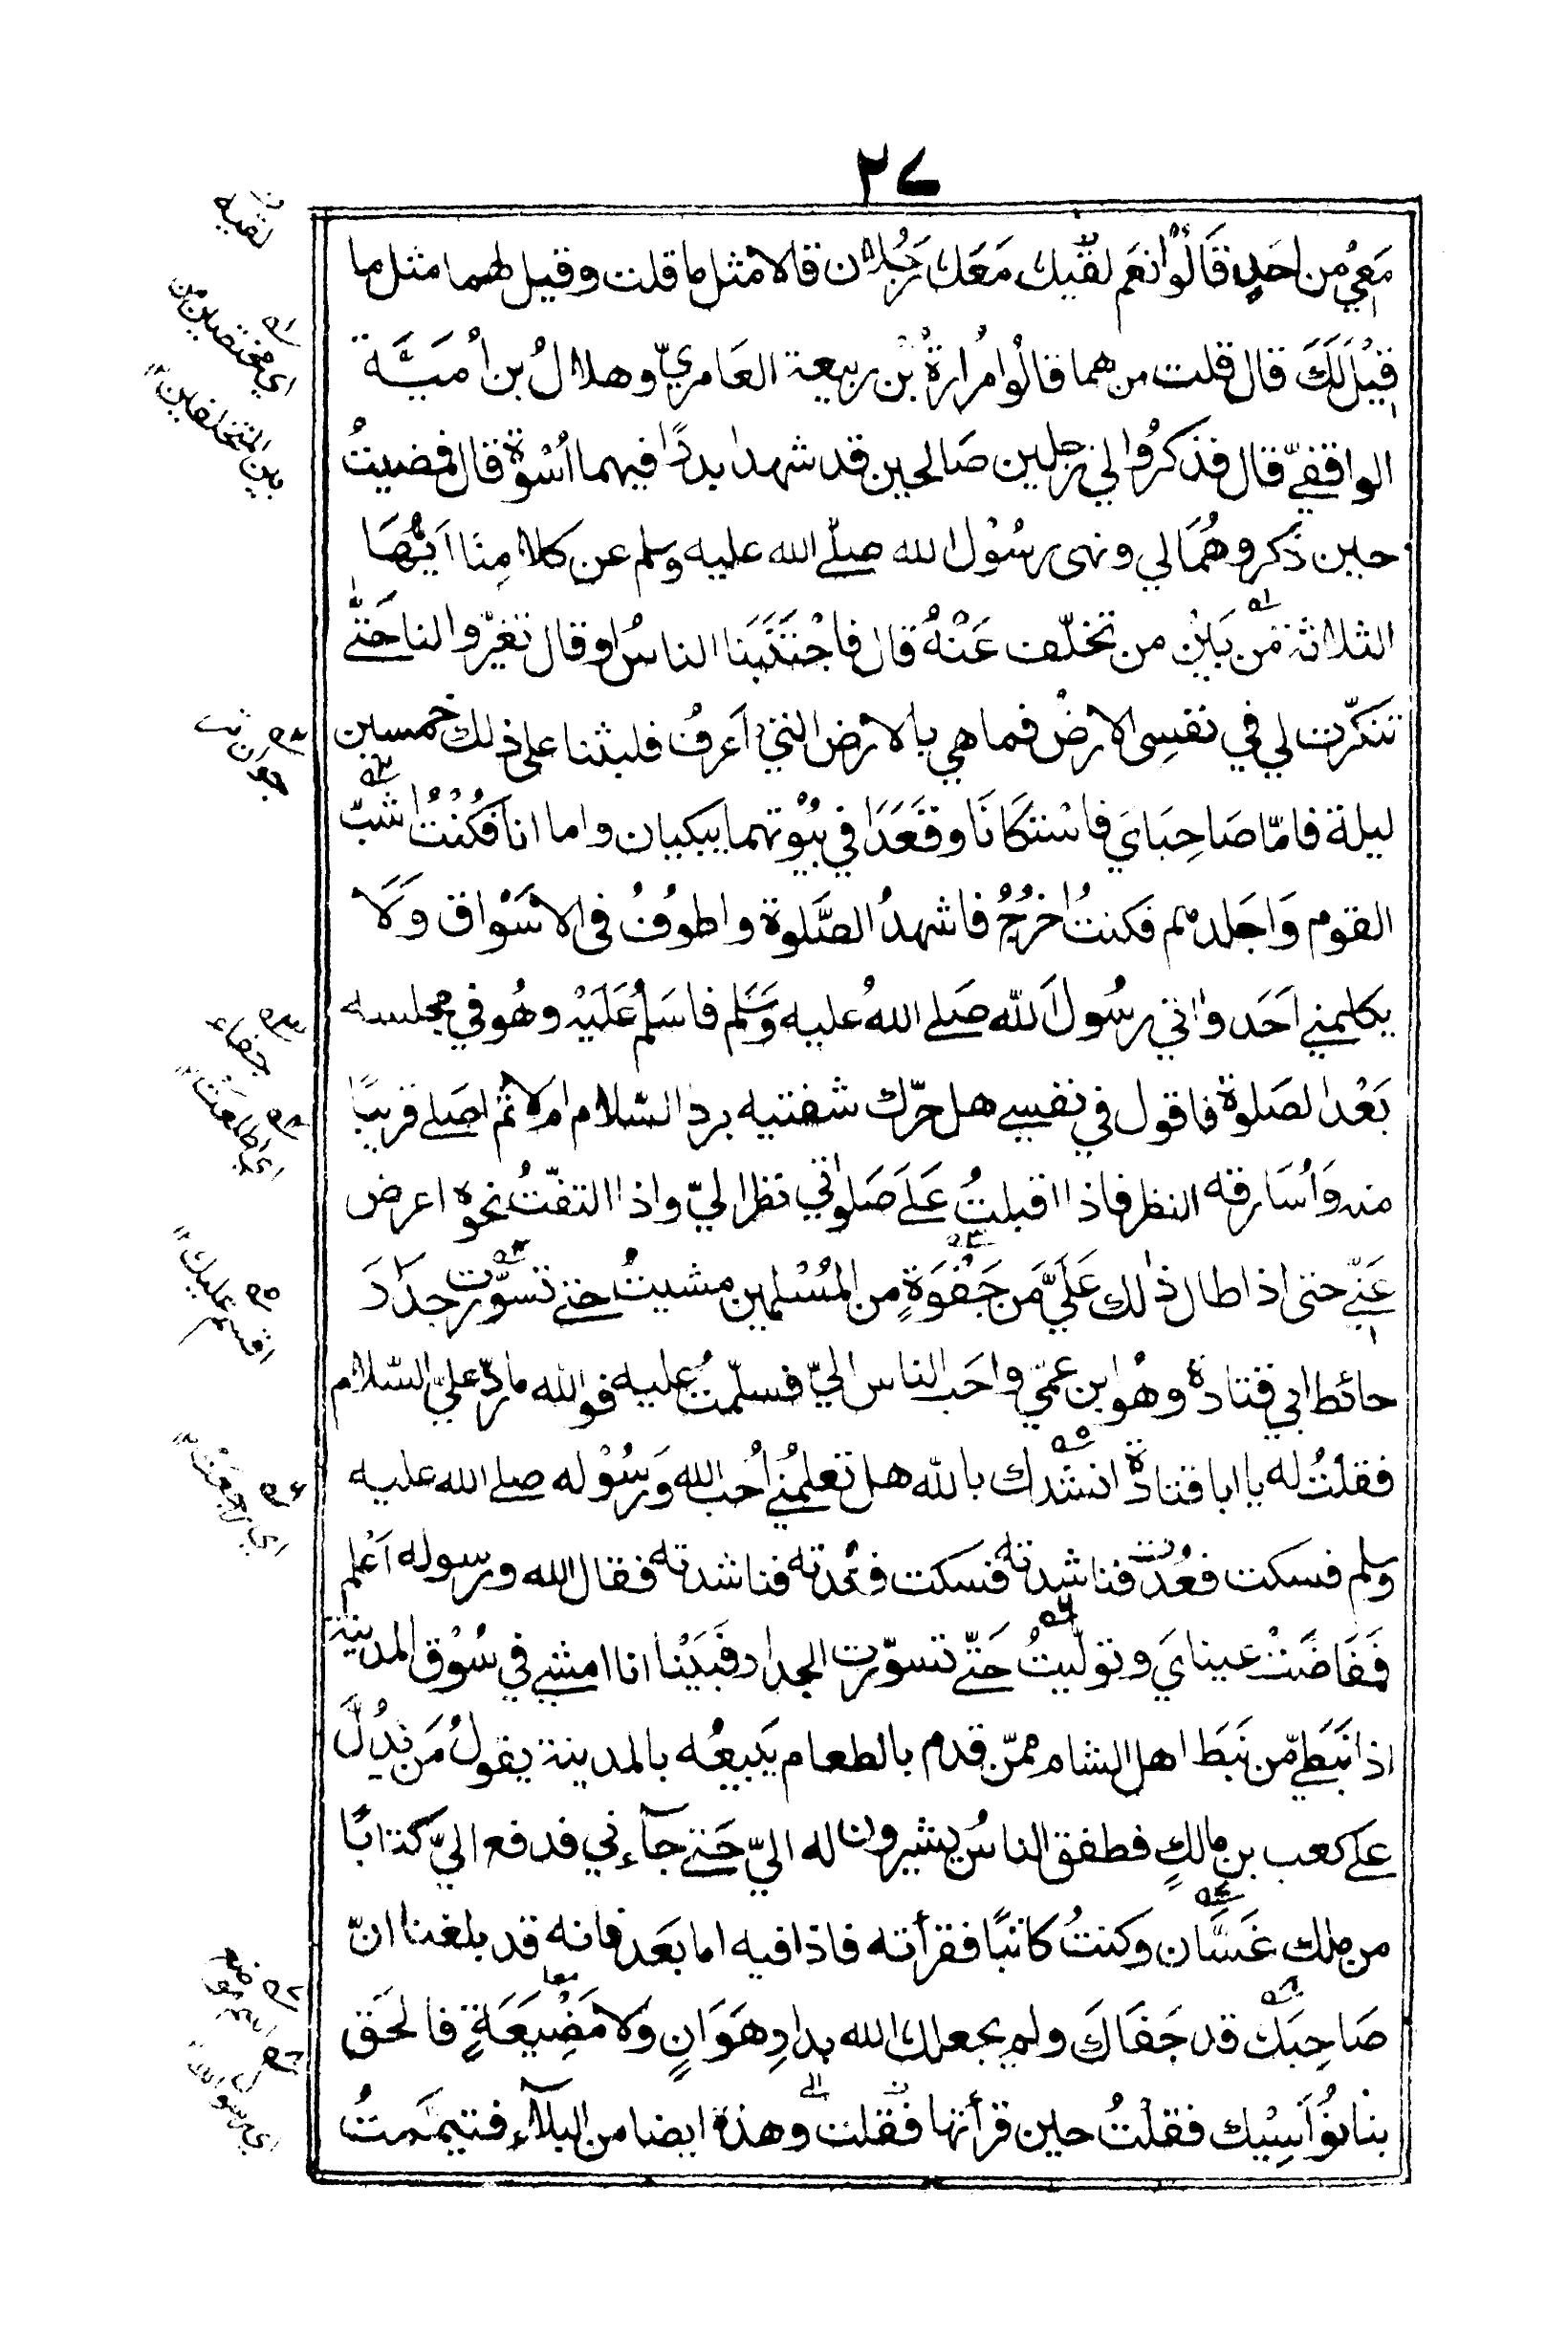 ٢٧
مَعِيْ من احَدٍ قَالُوْا نعَم لقيك مَعَكَ رَجُلان قالا مثل ما قلت وقيل لهما مثل ما
قِيْلَ لَكَ قال قلت من هما قالُوا مُرارةُ بْن ربيعة العَامريّ وهلالُ بن أُمَيَّة
الواقفيّ قال فذكرُوا لي رجلين صَالحين قد شهدا بدرًا فيهما اُسْوة قال فمضيتُ
حين ذكروهُمَا لي ونهى رسُوْل الله صلّے الله عليه وسلم عن كلامِنَا ايّهَا
الثلاثة مْن بَيْن من تخلّف عَنْهُ قال فاجْتَنَبَنا الناسُ او قال تغيّروا لنا حَتّٰے
تنكّرت لي في نفسِى الارضُ فما هي بالارض التيْ اَعرفُ فلبثنا على ذلك خمسين
ليلة فامّا صَاحِبَايَ فاسْتَكَانَا وقَعَدَا في بُيُوْتهما يبكيان واما انا فكُنْتُ اشبّ
القوم وَاجَلدهم فكنتُ اخرُجُ فاشهدُ الصَّلوة واطوُفُ فى الاسَْواق وَلَا
يكلمنے اَحَد واٰتي رسُول َالله صَلے اللهُ عليه وَسَلم فاسَلمُ عَلَيْهِ وهُو في مجلسه
بَعْدَ الصَلوة فاقول في نفسِے هل حرّك شفتيه برد السّلام ام لا ثم اصَلے قريبًا
منه وَاُسَارقه النظر فاذا اقبلتُ عَلَے صَلوٰتي نظر اليّ واذا التفتُّ نحوه اعرض
عَنِّے حتى اذا طال ذٰلك عَلَيَّ مَن جَفْوَةٍ من المُسْلمين مشيتُ حتے تسوّرت جدَارَ
حائط ابي قتادة وهُو ابن عمّي واحَب الناس اليّ فسلّمتُ عليه فوالله ما ردّ عليّ السّلام
فقلتُ له يا ابا قتادة انشدك بالله هل تعلمُنِے اُحب الله وَرسُوْله صلے الله عليه
وسلم فسكت فعُدت فناشدته فسكت فعُدته فناشدته فقال الله ورسوله اَعْلم
ففَاضَتْ عيناي وتولّيتُ حَتّے تسوّرت الجدار فَبَيْنا انا امشے في سُوْق المدينة
اذا نَبَطِيّ مّن نَبَط اهل الشام ممّن قدم بالطعام يَبيعُه بالمدينة يقولُ مَن يَدُلُّ
علے كعب بن مالكٍ فطفق الناسُ يشيرون له اليّ حَتے جآءني فدفع اليّ كتابًا
من ملك غَسَّان وكنتُ كاتبًا فقرأته فاذا فيه اما بَعَد فانه قد بلغنا انّ
صَاحِبَك قد جَفَاكَ ولم يجعلك الله بدارِ هَوَانٍ وَلا مَضْيَعَةٍ فالحَق
بنا نُوَاسِيْك فقلْتُ حين قرأتها فقلت وهذه ايضا من البلآء فتيممتُ
لقيه
اي مختصين من
بين المتخلفين
جوان
جفاء
اي اطلعت
اقسم عليك
اي رجعت
اي رسول الله